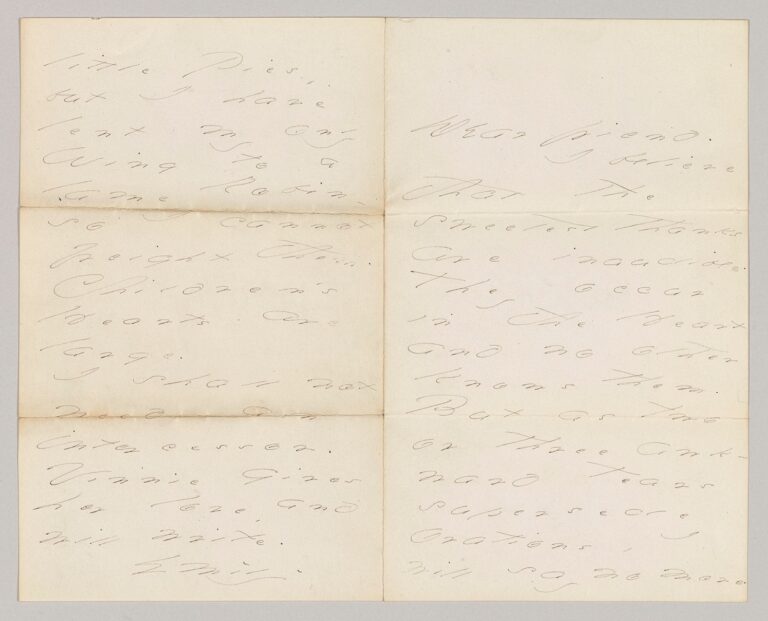 Dear friend.
I believe
that the
sweetest thanks
are inaudible.
They occur
in the Heart
and no other
knows them.
But as two
or three awk-
ward Tears
supersede
Orations, I
will say no more
little Pies,
but I have
lent my only
Wing to a
lame Robin,
so I cannot
freight them.
Children's
Hearts are
large.
I shall not
need an
intercessor.
Vinnie gives
her love, and
will write.
Emily.